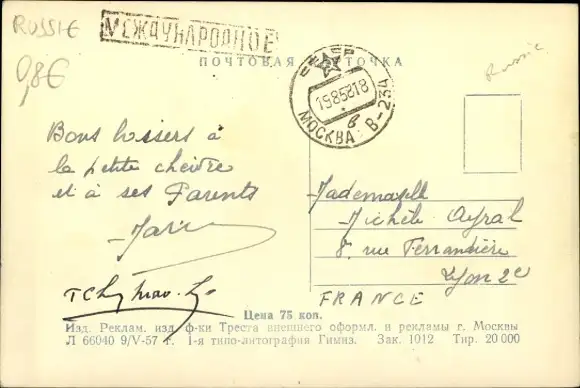 RUSSIE
МЕЖДУНАРОДНОЕ
0,8€
ПОЧТОВАЯ КАРТОЧКА
Russie
МОСКВА В-234
Bons baisers à
la petite chèvre
et à ses Parents
Mademoiselle
Michèle Ayral
8, rue Ferrandière
Lyon 2e
FRANCE
Цена 75 коп.
Изд. Реклам. изд. ф-ки Треста внешнего оформл. и рекламы г. Москвы
Л 66040 9/V-57 г. 1-я типо-литография Гимиз. Зак. 1012 Тир. 20 000